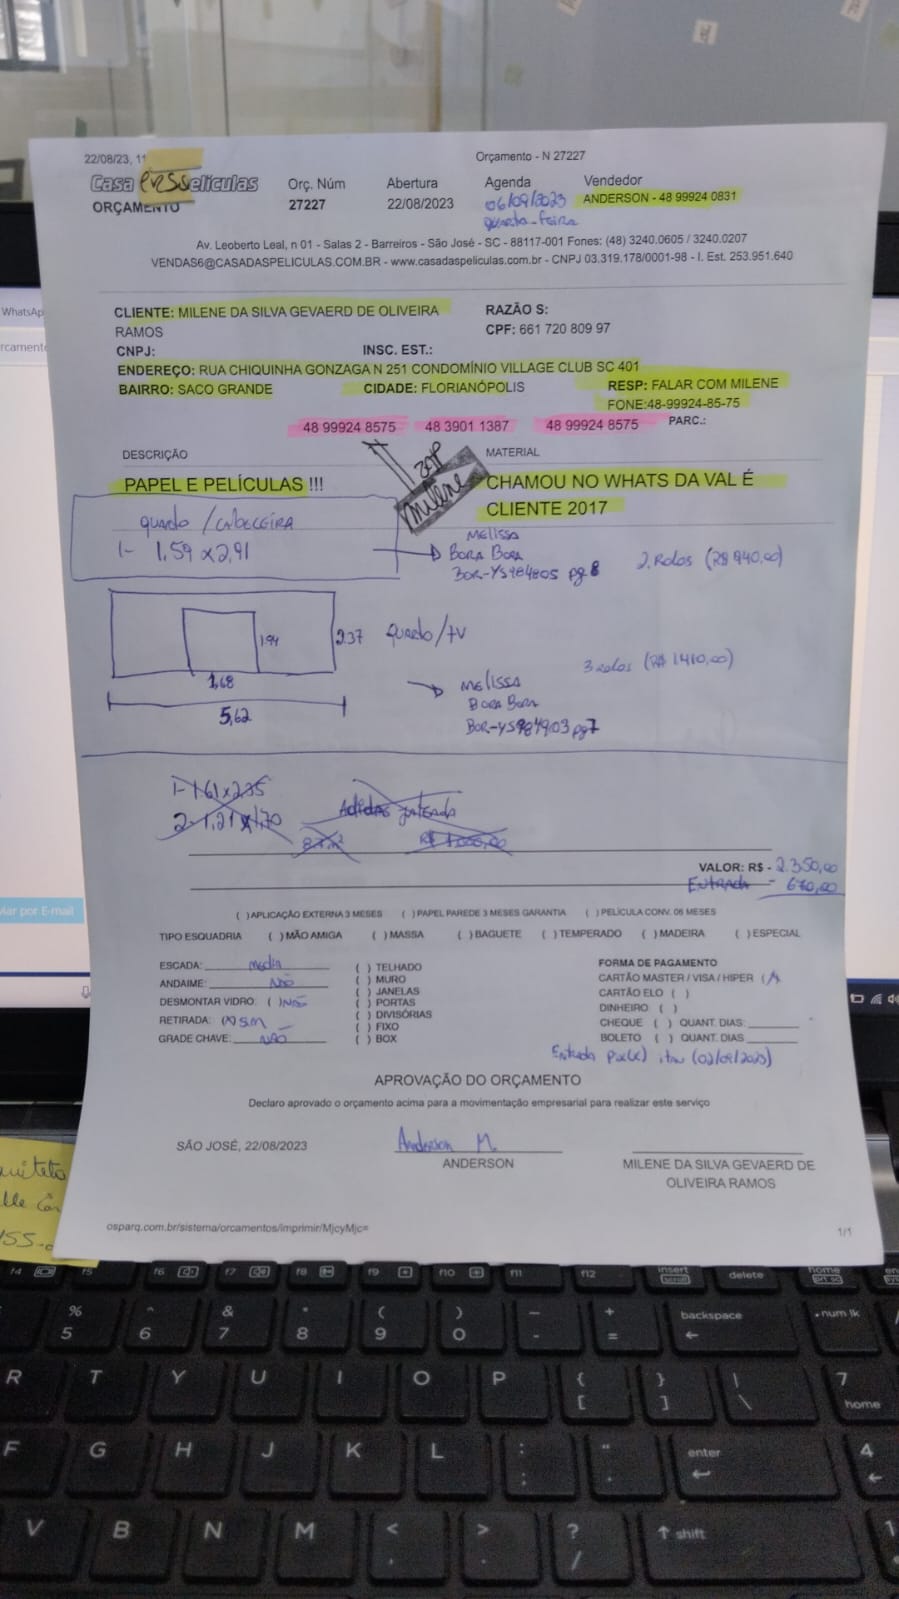 22/08/23, 11
Orçamento - N 27227
Casa Películas
ORÇAMENTO
Orç. Núm
27227
Abertura
22/08/2023
Agenda
06/09/2023
quarta-feira
Vendedor
ANDERSON - 48 99924 0831
Av. Leoberto Leal, n 01 - Salas 2 - Barreiros - São José - SC - 88117-001 Fones: (48) 3240.0605 / 3240.0207
VENDAS6@CASADASPELICULAS.COM.BR - www.casadaspeliculas.com.br - CNPJ 03.319.178/0001-98 - I. Est. 253.951.640
CLIENTE: MILENE DA SILVA GEVAERD DE OLIVEIRA
RAMOS
RAZÃO S:
CPF: 661 720 809 97
CNPJ: INSC. EST.:
ENDEREÇO: RUA CHIQUINHA GONZAGA N 251 CONDOMÍNIO VILLAGE CLUB SC 401
BAIRRO: SACO GRANDE CIDADE: FLORIANÓPOLIS RESP: FALAR COM MILENE
FONE:48-99924-85-75
48 99924 8575 48 3901 1387 48 99924 8575 PARC.:
DESCRIÇÃO MATERIAL
PAPEL E PELÍCULAS !!!
ZAP
Milene
CHAMOU NO WHATS DA VAL É
CLIENTE 2017
quarto / cabeceira
1- 1,59 x 2,91
Melissa
Bora Bora
BOR-YS984805 pg 8
2 Rolos (R$ 940,00)
1,94
2,37
quarto/tv
1,68
5,62
3 rolos (R$ 1410,00)
Melissa
Bora Bora
BOR-YS984903 pg 7
1- 1,61 x 2,35
2- 1,21 x 1,70
Adidas Jateada
R$ 1.000,00
VALOR: R$ - 2.350,00
Entrada - 670,00
( )APLICAÇÃO EXTERNA 3 MESES ( ) PAPEL PAREDE 3 MESES GARANTIA ( ) PELÍCULA CONV. 06 MESES
TIPO ESQUADRIA ( ) MÃO AMIGA ( ) MASSA ( ) BAGUETE ( ) TEMPERADO ( ) MADEIRA ( ) ESPECIAL
ESCADA: media
ANDAIME: NÃO
DESMONTAR VIDRO: ( )NÃO
RETIRADA: (X) Sim
GRADE CHAVE: NÃO
( ) TELHADO
( ) MURO
( ) JANELAS
( ) PORTAS
( ) DIVISÓRIAS
( ) FIXO
( ) BOX
FORMA DE PAGAMENTO
CARTÃO MASTER / VISA / HIPER (X
CARTÃO ELO ( )
DINHEIRO ( )
CHEQUE ( ) QUANT. DIAS:
BOLETO ( ) QUANT. DIAS
Entrada Pix(x) itau (02/09/2023)
APROVAÇÃO DO ORÇAMENTO
Declaro aprovado o orçamento acima para a movimentação empresarial para realizar este serviço
SÃO JOSÉ, 22/08/2023
Anderson M.
ANDERSON
MILENE DA SILVA GEVAERD DE
OLIVEIRA RAMOS
osparq.com.br/sistema/orcamentos/imprimir/MjcyMjc=
1/1
WhatsAp
rcamento
viar por E-mail
f4 f5 f6 f7 f8 f9 f10 f11 f12 insert delete home
scroll
% 5 ^ 6 & 7 * 8 ( 9 ) 0 _ - + = backspace num lk
R T Y U I O P { [ } ] | \ 7 home
F G H J K L : ; " ' enter 4
V B N M < , > . ? / shift 1